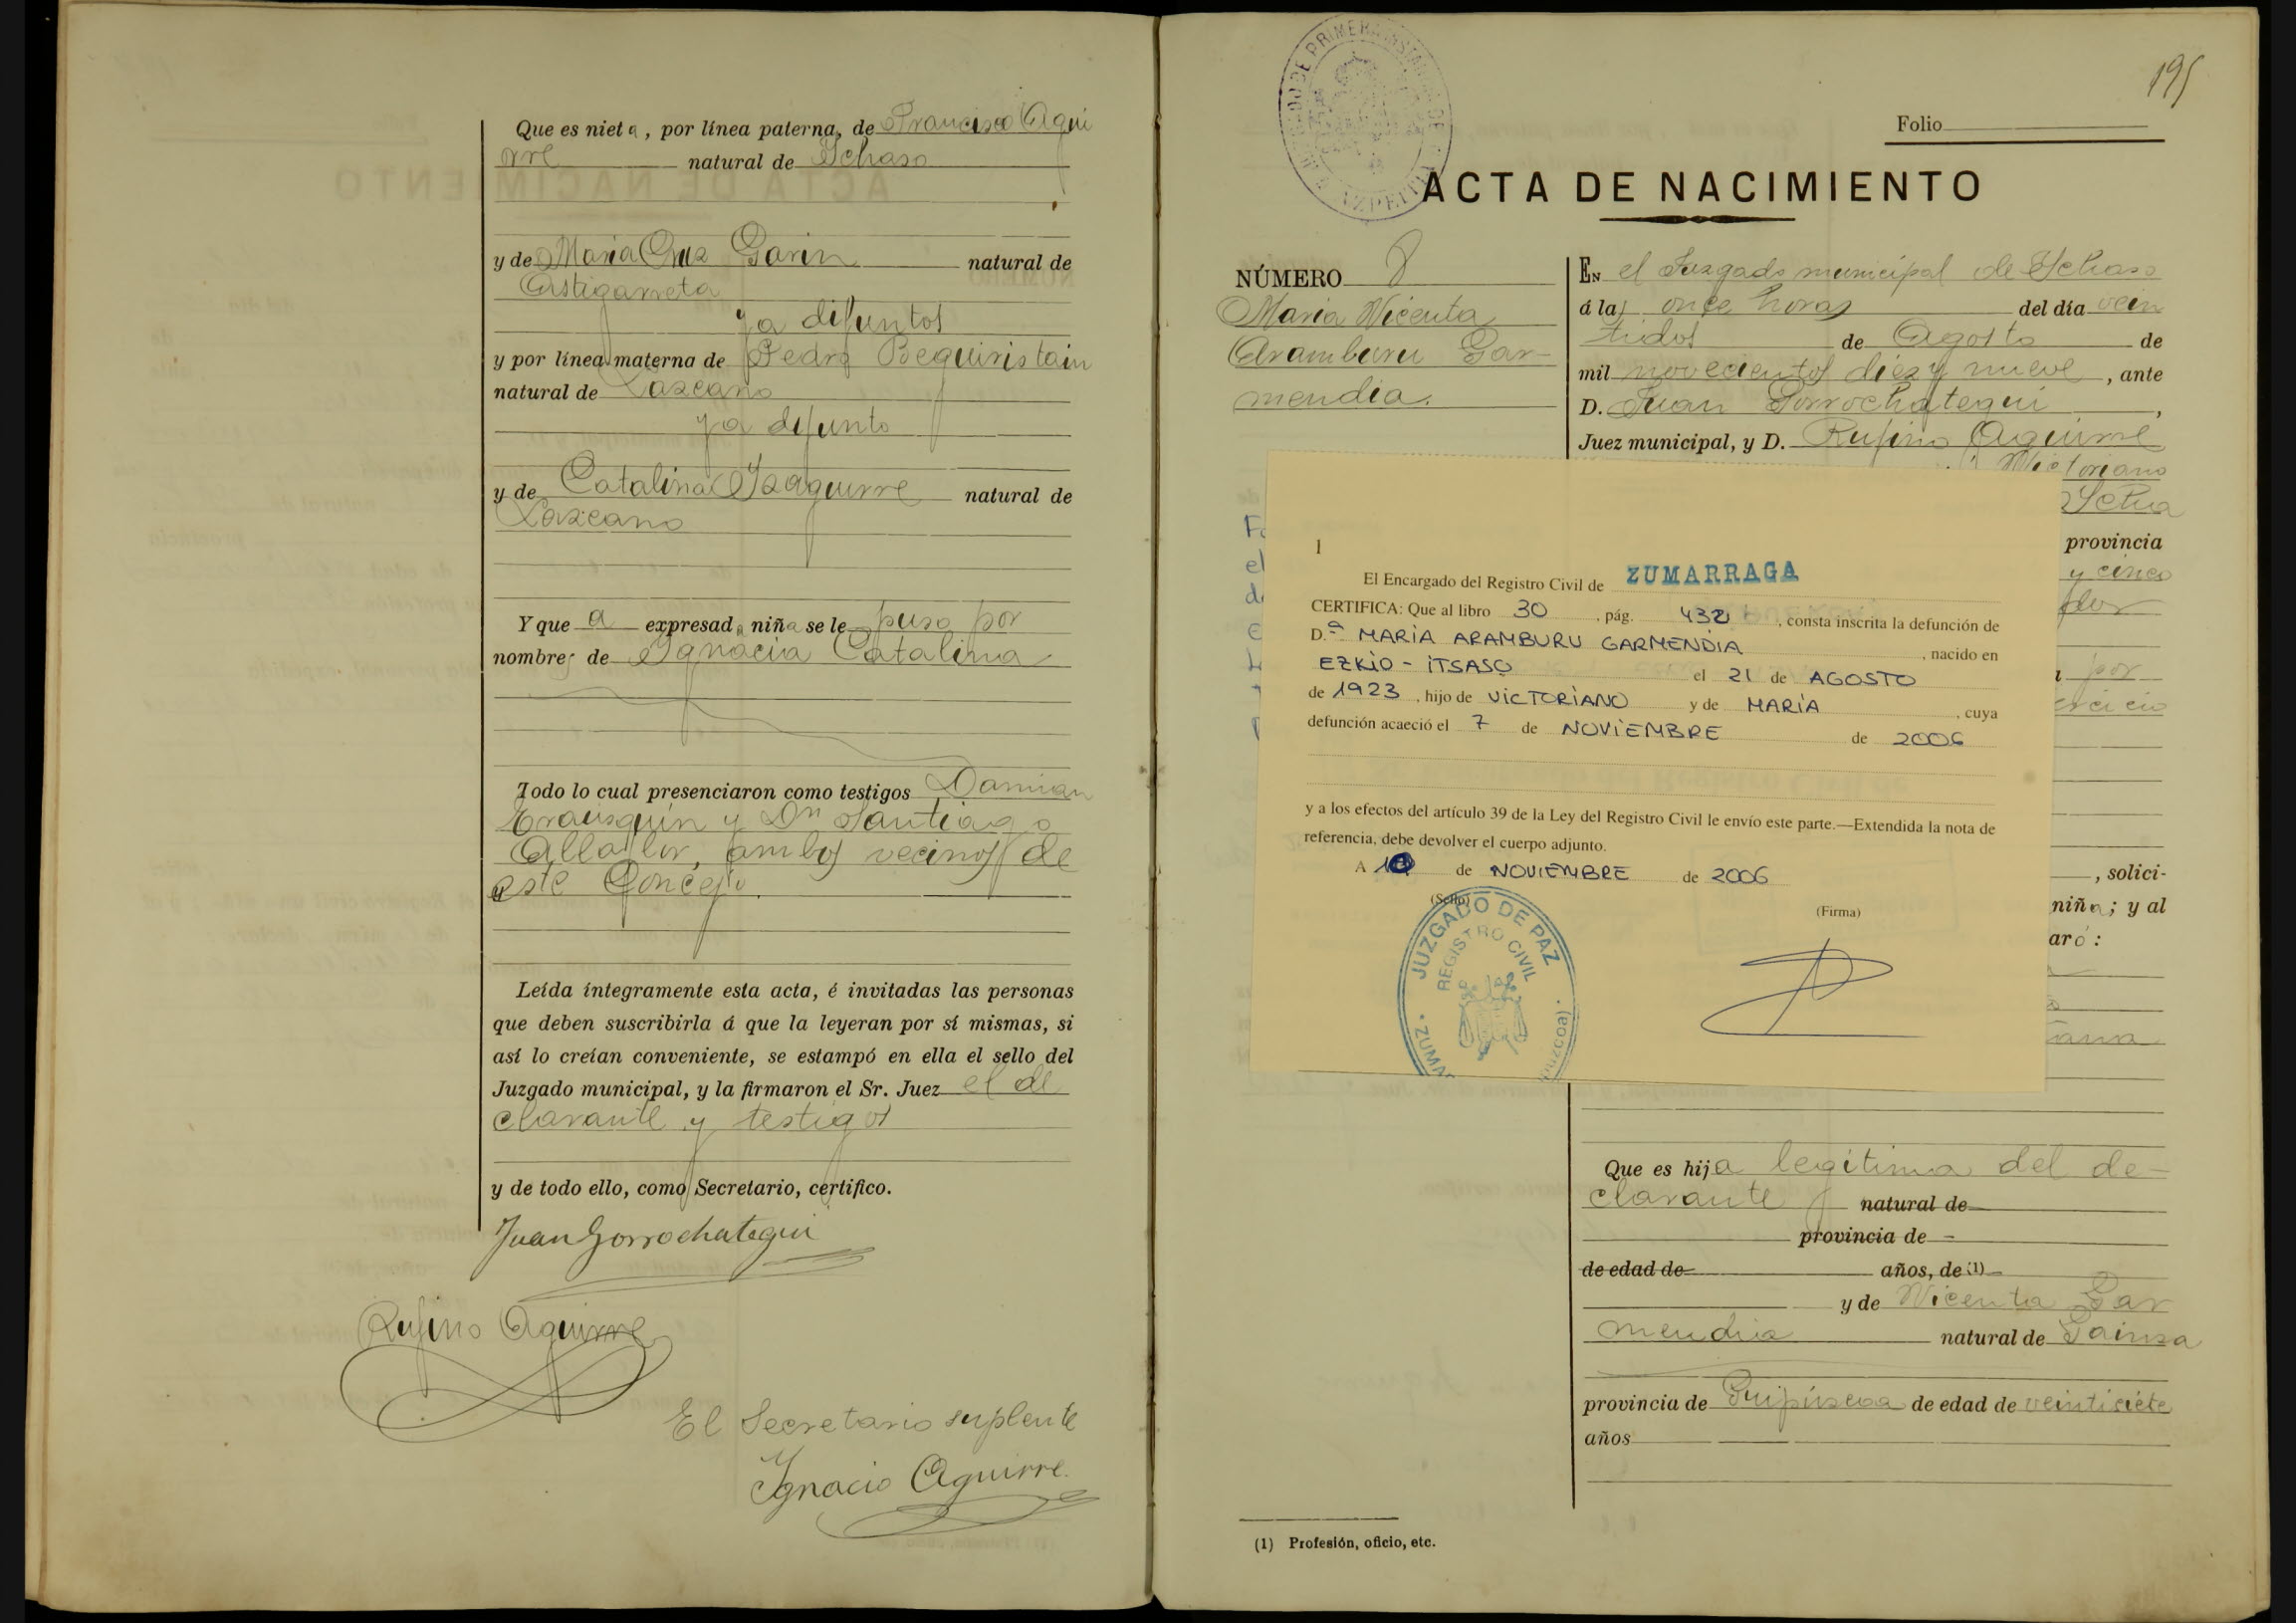 Que es nieta, por línea paterna, de Francisco Agui
rre natural de Ychaso
y de Maria Cruz Garin natural de
Astigarreta
ya difuntos
y por línea materna de Pedro Beguiristain
natural de Lazcano
ya difunto
y de Catalina Yzaguirre natural de
Lazcano
Y que a expresada niña se le puso por
nombres de Ygnacia Catalina
Todo lo cual presenciaron como testigos Damian
Erausquin y Dn Santiago
ambos vecinos de
este Concejo.
Leída íntegramente esta acta, é invitadas las personas
que deben suscribirla á que la leyeran por sí mismas, si
así lo creían conveniente, se estampó en ella el sello del
Juzgado municipal, y la firmaron el Sr. Juez el de
clarante y testigos
y de todo ello, como Secretario, certifico.
Juan Gorrochategui
Rufino Aguirre
El Secretario suplente
Ygnacio Aguirre.
195
Folio
JUZGADO DE PRIMERA INSTANCIA DE AZPEITIA
ACTA DE NACIMIENTO
NÚMERO 8
Maria Vicenta
Aramburu Gar-
mendia.
EN el Juzgado municipal de Ychaso
á las once horas del día vein
tidos de Agosto de
mil novecientos diez y nueve, ante
D. Juan Gorrochategui,
Juez municipal, y D. Rufino Aguirre
Victoriano
Ycha
provincia
y cinco
dor
por
ercicio
, solici-
niña; y al
aró:
ñana
1
El Encargado del Registro Civil de ZUMARRAGA
CERTIFICA: Que al libro 30, pág. 432, consta inscrita la defunción de
D.ª MARIA ARAMBURU GARMENDIA, nacido en
EZKIO - ITSASO el 21 de AGOSTO
de 1923, hijo de VICTORIANO y de MARIA, cuya
defunción acaeció el 7 de NOVIEMBRE de 2006
y a los efectos del artículo 39 de la Ley del Registro Civil le envío este parte.—Extendida la nota de
referencia, debe devolver el cuerpo adjunto.
A de NOVIEMBRE de 2006
(Sello)
(Firma)
JUZGADO DE PAZ
REGISTRO CIVIL
ZUMA
uzcoa)
Que es hija legítima del de-
clarante natural de
provincia de
de edad de años, de (1)
y de Vicenta Gar
mendia natural de Gainza
provincia de Guipúscoa de edad de veintisiete
años
(1) Profesión, oficio, etc.